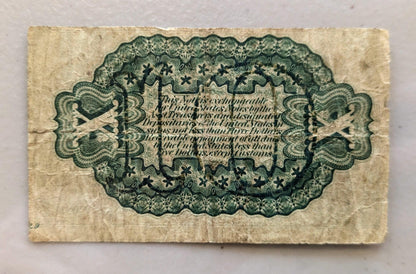 This Note is exchangeable
for United States Notes by the
Asst. Treasurers and designated
Depositories of the United States in
sums not less than Three Dollars.
Receivable in payment of all dues
to the United States less than
Five Dollars, except Customs.
X X